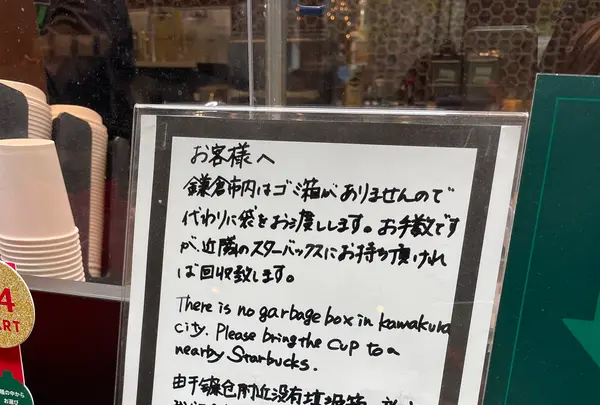 お客様へ
鎌倉市内はゴミ箱がありませんので
代わりに袋をお渡しします。お手数です
が、近隣のスターバックスにお持ち頂けれ
ば回収致します。
There is no garbage box in kamakura
city. Please bring the cup to a
nearby Starbucks.
由于鎌仓附近没有垃圾箱
4
ART
種の中から
お選び